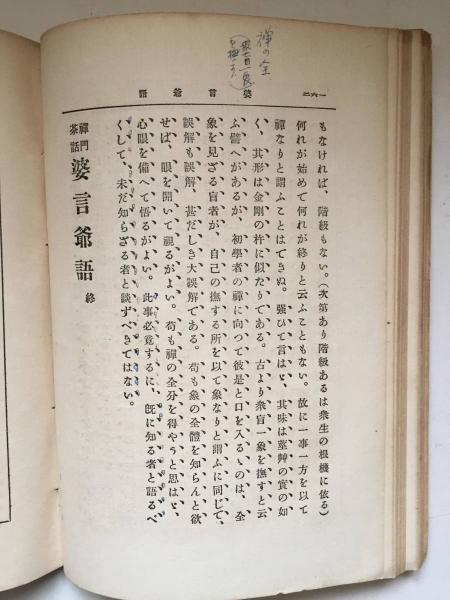 禪の全
婆言爺語
一六二
もなければ、階級もない。(次第あり階級あるは衆生の根機に依る)
何れが始めて何れが終りと云ふこともない。故に一事一方を以て
禪なりと謂ふことはできぬ。强ひて言はゞ、其味は蓽茇の實の如
く、其形は金剛の杵に似たりである。古より衆盲一象を撫すと云
ふ譬へがあるが、初學者の禪に向つて彼是と口を入るゝのは、全
象を見ざる盲者が、自己の撫する所を以て象なりと謂ふに同じて、
誤解も誤解、甚だしき大誤解である。苟も象の全體を知らんと欲
せば、眼を開いて視るがよい。苟も禪の全分を得やうと思はゞ、
心眼を備へて悟るがよい。此事必竟するに、旣に知る者と語るべ
くして、未だ知らざる者と談ずべきではない。
禪門茶話 婆言爺語 終